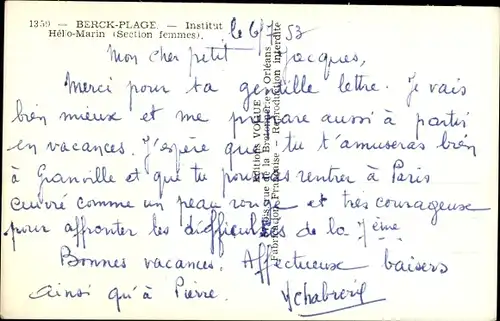 1359 — BERCK-PLAGE. — Institut
Hélio-Marin (Section femmes).
le 6/7 53
Mon cher petit Jacques,
Merci pour ta gentille lettre. Je vais
bien mieux et me prépare aussi à partir
en vacances. J'espère que tu t'amuseras bien
à Granville et que tu pourras rentrer à Paris
cuivré comme un peau rouge et très courageuse
pour affronter les difficultés de la 7ème
Bonnes vacances. Affectueux baisers
ainsi qu'à Pierre.
Éditions VOGUE
Fabrication Française — Reproduction interdite